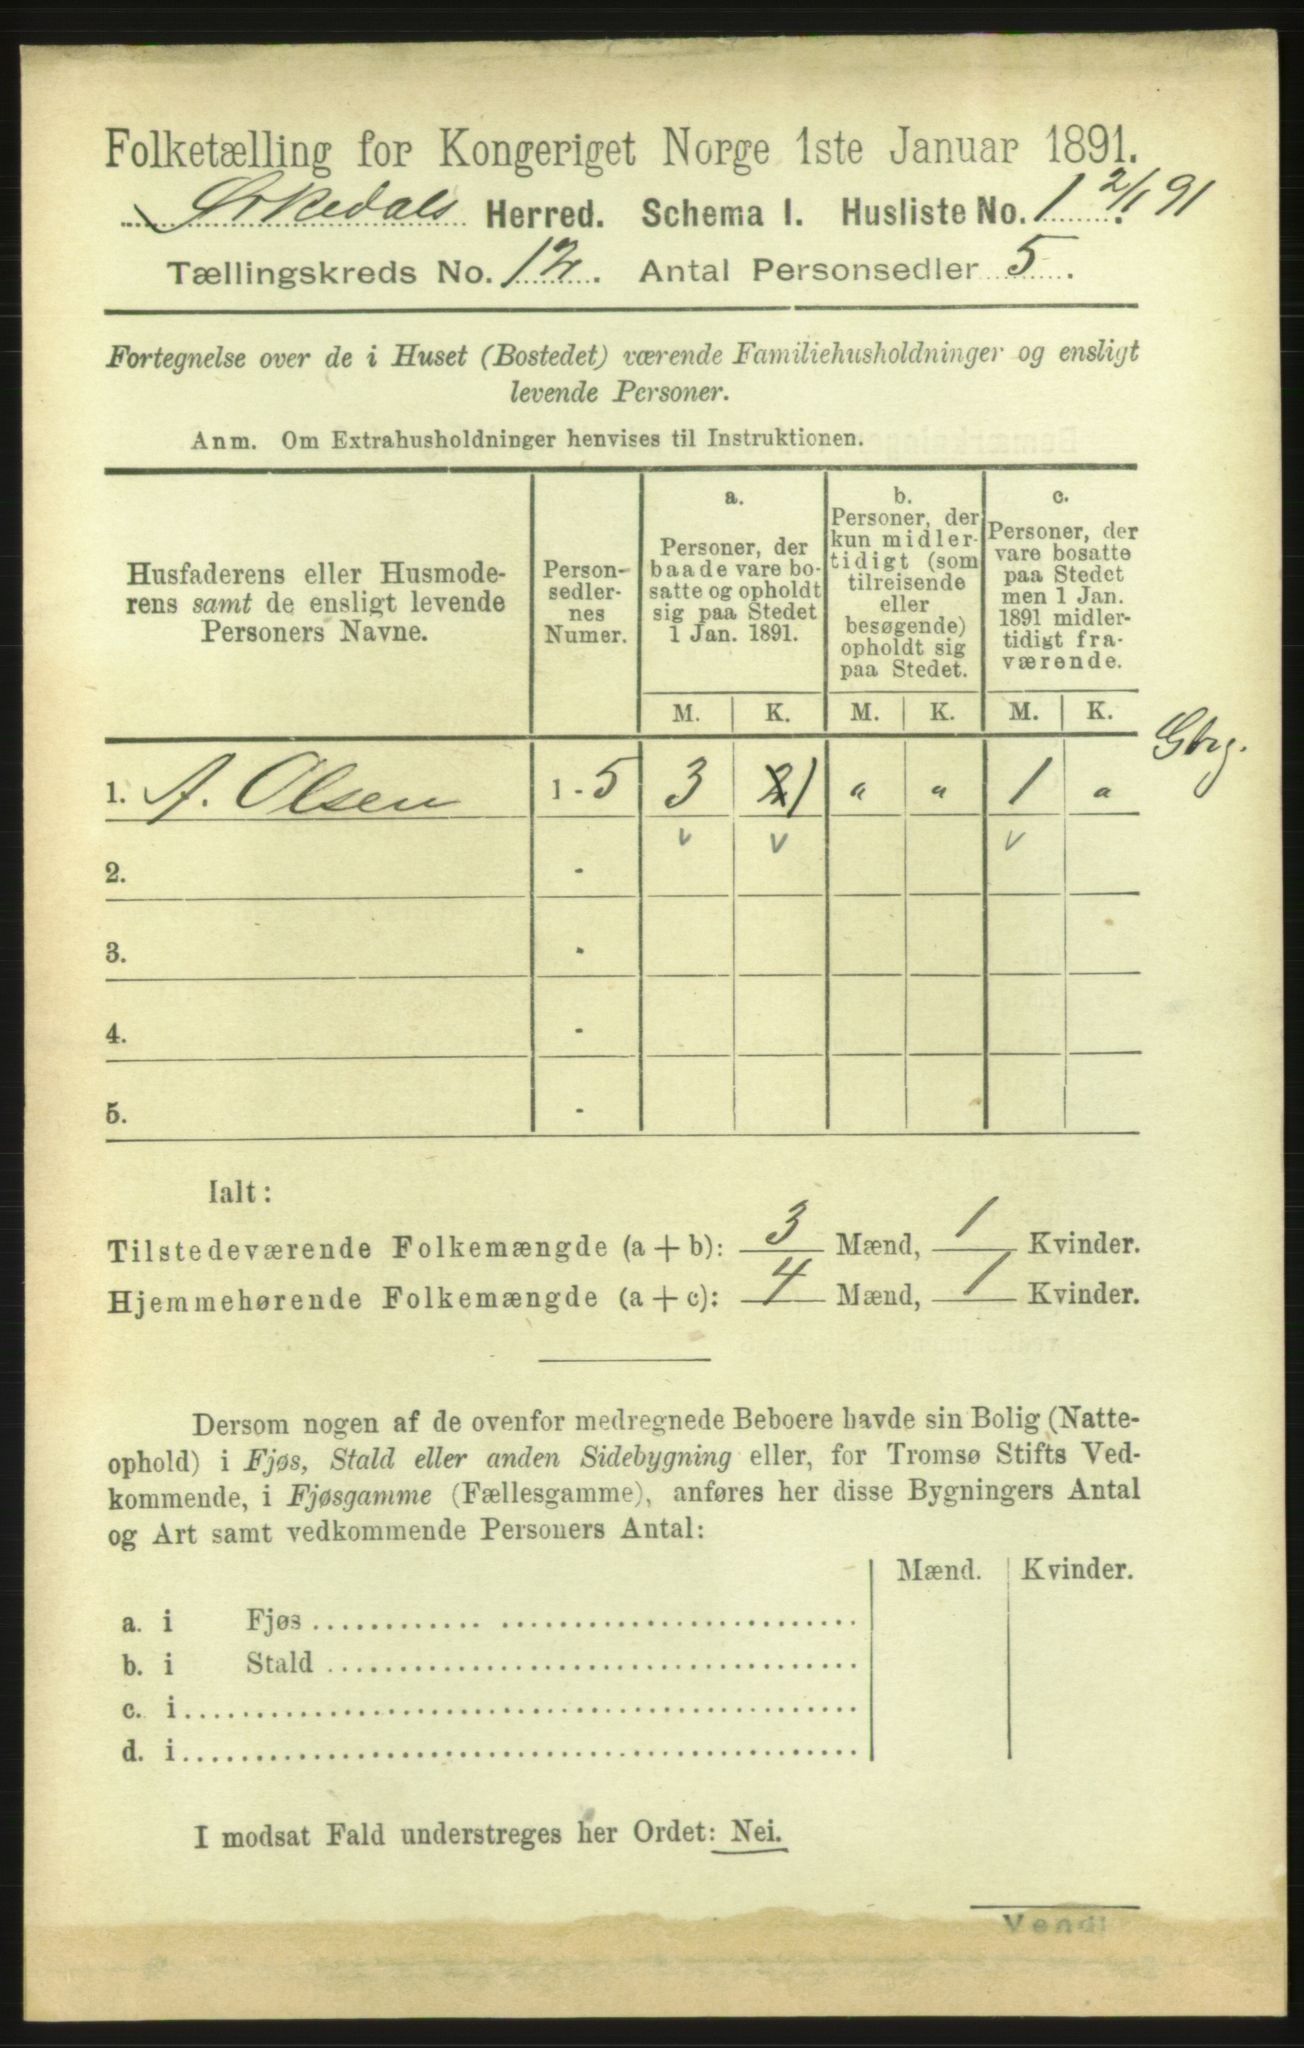 Folketælling for Kongeriget Norge 1ste Januar 1891.
Ørkedals Herred. Schema I. Husliste No. 1 2/1 91
Tællingskreds No. 12. Antal Personsedler 5.
Fortegnelse over de i Huset (Bostedet) værende Familiehusholdninger og ensligt
levende Personer.
Anm. Om Extrahusholdninger henvises til Instruktionen.
Husfaderens eller Husmode-
rens samt de ensligt levende
Personers Navne.
Person-
sedler-
nes
Numer.
a.
Personer, der
baade vare bo-
satte og opholdt
sig paa Stedet
1 Jan. 1891.
b.
Personer, der
kun midler-
tidigt (som
tilreisende
eller
besøgende)
opholdt sig
paa Stedet.
c.
Personer, der
vare bosatte
paa Stedet
men 1 Jan.
1891 midler-
tidigt fra-
værende.
M. K. M. K. M. K.
Gbrg.
1. A. Olsen 1 - 5 3 2 1 " " 1 "
v v v
2. -
3. -
4. -
5. -
Ialt:
Tilstedeværende Folkemængde (a + b): 3 Mænd, 1 Kvinder.
Hjemmehørende Folkemængde (a + c): 4 Mænd, 1 Kvinder.
Dersom nogen af de ovenfor medregnede Beboere havde sin Bolig (Natte-
ophold) i Fjøs, Stald eller anden Sidebygning eller, for Tromsø Stifts Ved-
kommende, i Fjøsgamme (Fællesgamme), anføres her disse Bygningers Antal
og Art samt vedkommende Personers Antal:
Mænd. Kvinder.
a. i Fjøs
b. i Stald
c. i
d. i
I modsat Fald understreges her Ordet: Nei.
Vend!